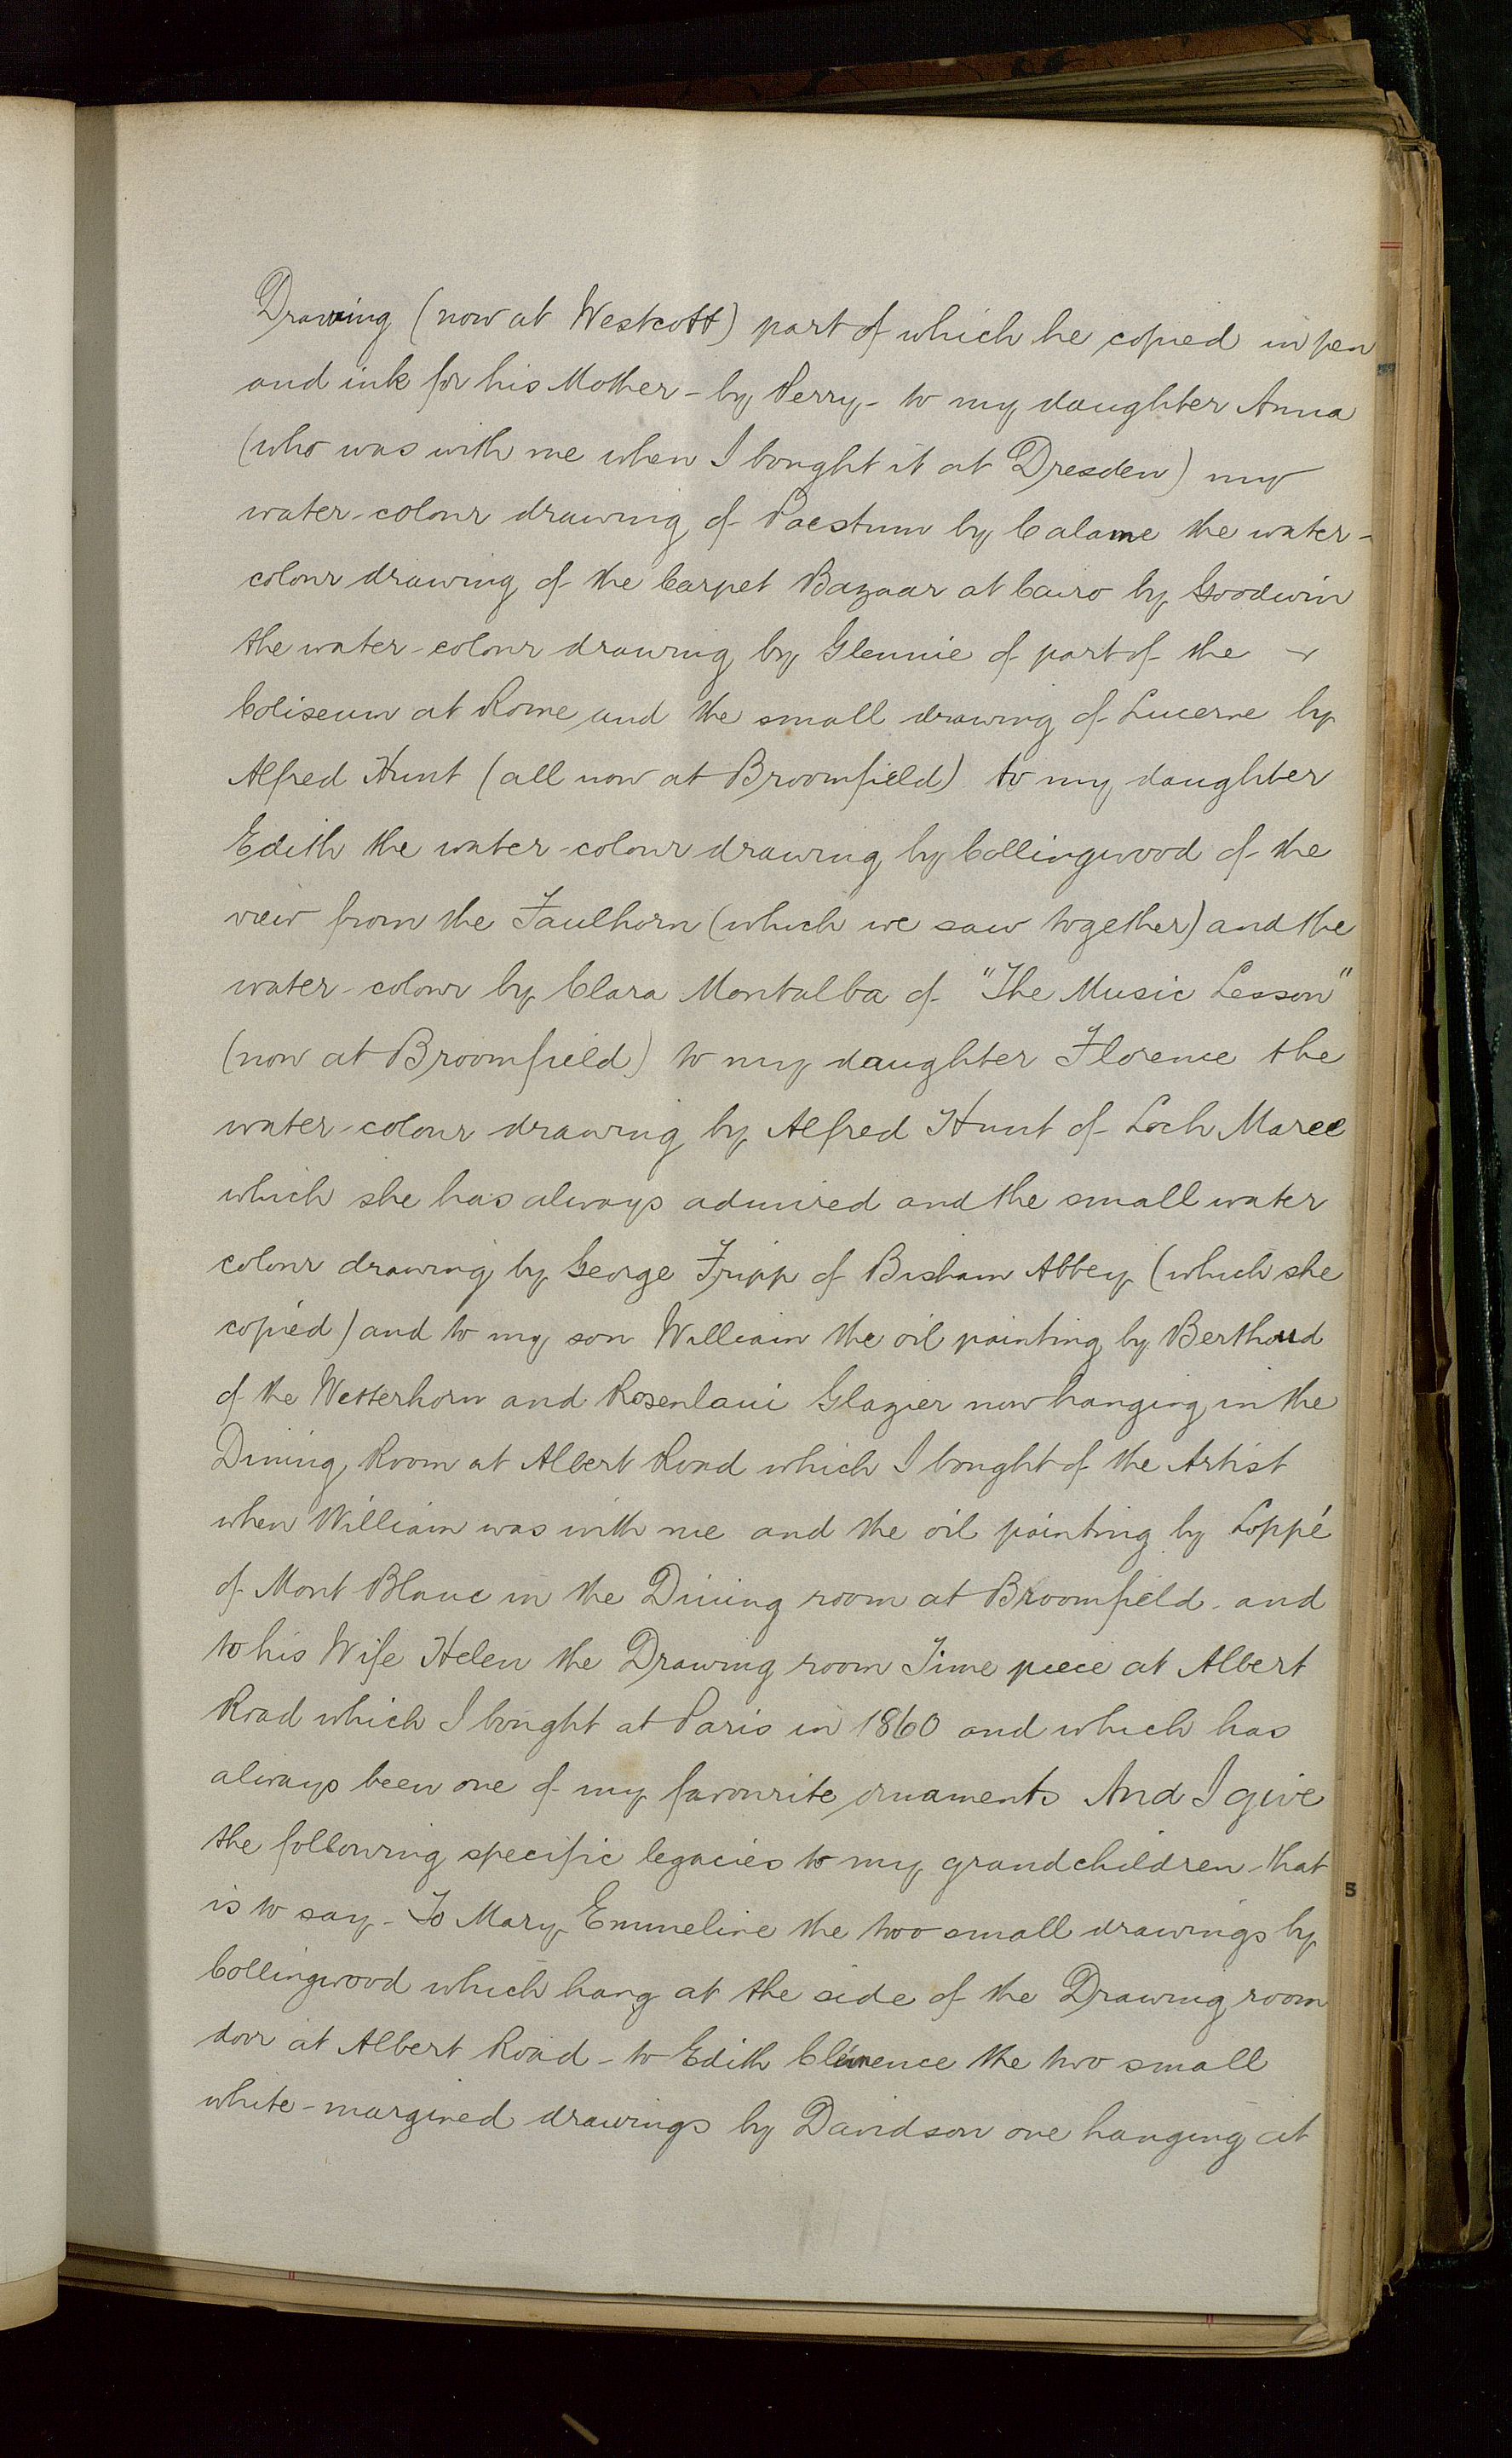 Drawing (now at Westcott) part of which he copied in pen
and ink for his Mother - by Perry - to my daughter Anna
(who was with me when I bought it at Dresden) my
water-colour drawing of Paestum by Calame the water-
colour drawing of the Carpet Bazaar at Cairo by Goodwin
the water-colour drawing by Glennie of part of the
Coliseum at Rome and the small drawing of Lucerne by
Alfred Hunt (all now at Broomfield) to my daughter
Edith the water-colour drawing by Collingwood of the
view from the Faulhorn (which we saw together) and the
water-colour by Clara Montalba of "The Music Lesson"
(now at Broomfield) to my daughter Florence the
water-colour drawing by Alfred Hunt of Loch Maree
which she has always admired and the small water
colour drawing by George Fripp of Bisham Abbey (which she
copied) and to my son William the oil painting by Berthoud
of the Wetterhorn and Rosenlaui Glazier now hanging in the
Dining Room at Albert Road which I bought of the Artist
when William was with me and the oil painting by Loppé
of Mont Blanc in the Dining room at Broomfield - and
to his Wife Helen the Drawing room Time piece at Albert
Road which I bought at Paris in 1860 and which has
always been one of my favourite ornaments And I give
the following specific legacies to my grandchildren - that
is to say - To Mary Emmeline the two small drawings by
Collingwood which hang at the side of the Drawing room
door at Albert Road - to Edith Clémence the two small
white-margined drawings by Davidson one hanging at
5